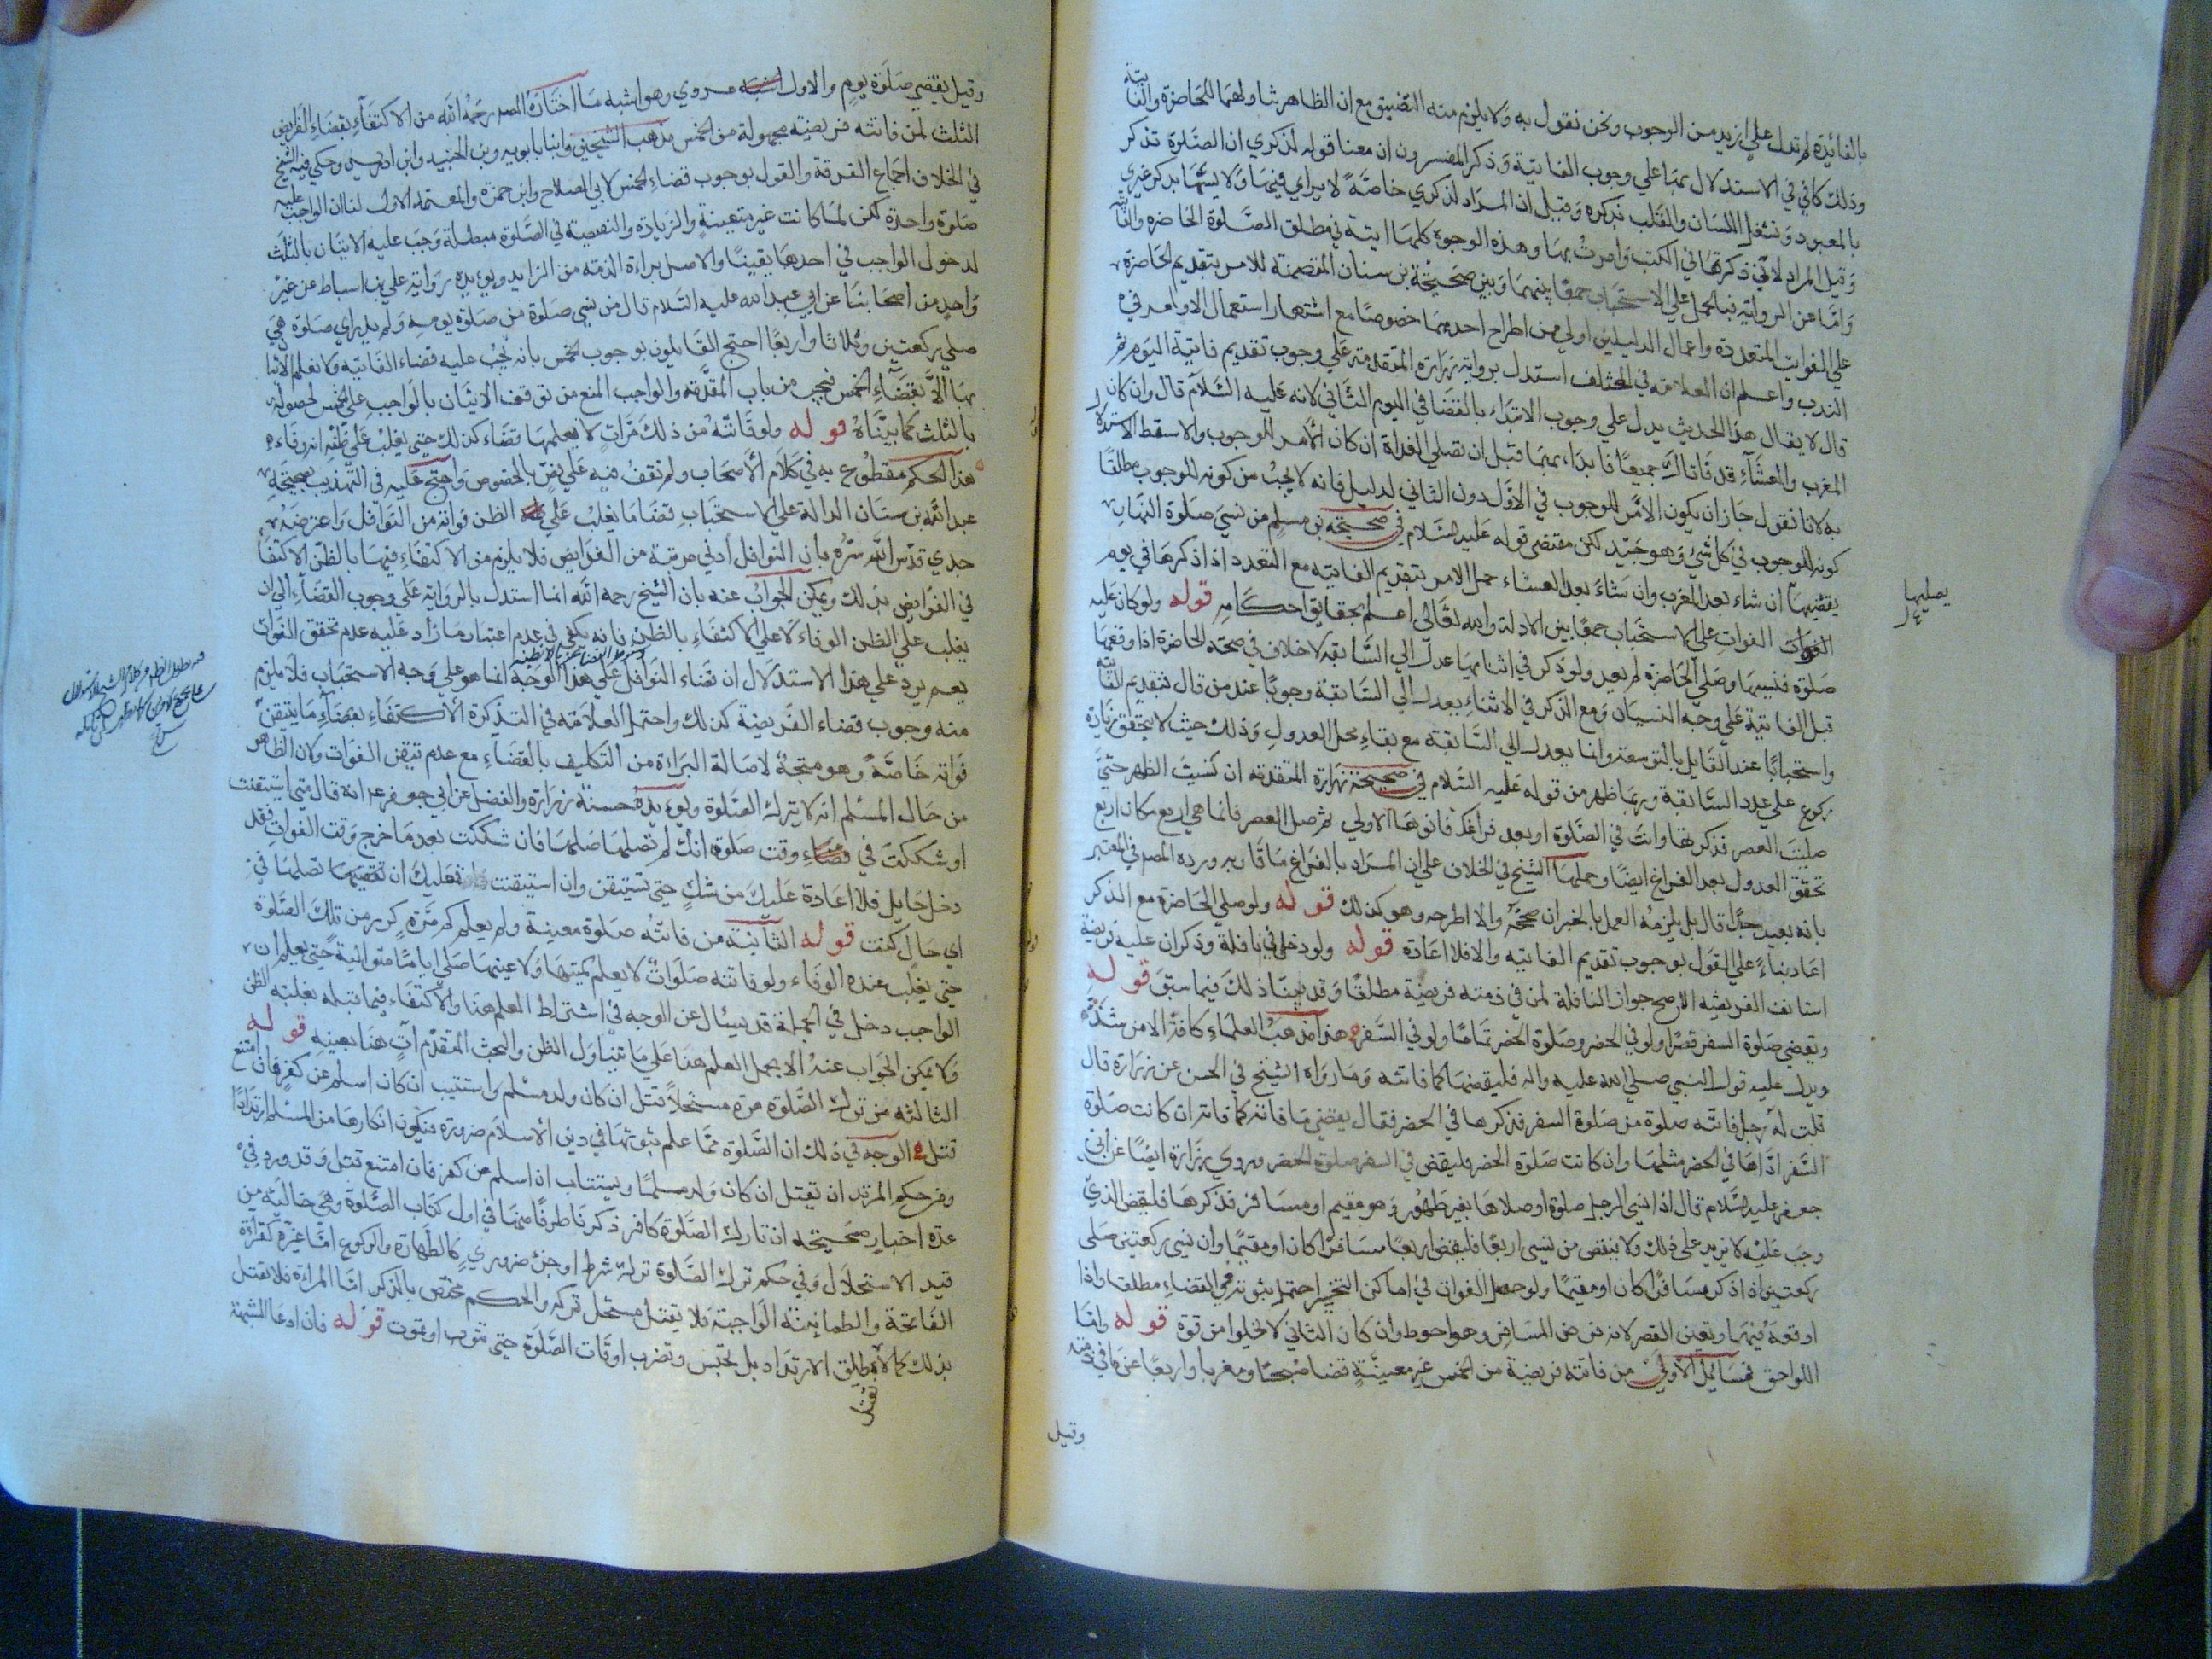 بالفائدة لم تدل علي ازيد من الوجوب ونحن نقول به ولا يلزم منه التضييق مع ان الظاهر تناولهما للحاضرة والفايتة
وذلك كافي في الاستدلال بهما علي وجوب الفايتة وذكر المفسرون ان معنا قوله لذكري ان الصلوة تذكر
بالمعبود وتشغل اللسان والقلب بذكره وقيل ان المراد لذكري خاصة لا يراي فيها ولا يشبها بذكر غيري
وقيل المراد لاني ذكرتها في الكتب وامرت بها وهذه الوجوه كلها اتية في مطلق الصلوة الحاضره والفايتة
واما عن الرواية فبالحمل علي الاستحباب جمعا بينهما وبين صحيحة بن سنان المتضمنة للامر بتقديم الحاضرة
علي الفوايت المتعددة واعمال الدليلين اولي من اطراح احدهما خصوصا مع اشتهار استعمال الاوامر في
الندب واعلم ان العلامة في المختلف استدل برواية زرارة المتقدمة علي وجوب تقديم فايتة اليوم ثم
قال لا يقال هذا الحديث يدل علي وجوب الابتداء بالقضا في اليوم الثاني لانه عليه السلام قال وان كان
المغرب والعشاء قد فاتاك جميعا فابداء بهما قبل ان تصلي الغداة ان كان الامر للوجوب والا سقط الاستدلال
به لانا نقول جاز ان يكون الامر للوجوب في الاول دون الثاني لدليل فانه لا يجب من كونه للوجوب مطلقا
كونه للوجوب في كل شي وهو جيد لكن مقتضي قوله عليه السلام في صحيحة بن مسلم من نسي صلوة النهار
يقضيها ان شاء بعد المغرب وان شاء بعد العشاء حمل الامر بتقديم الفايته مع التعدد اذا ذكرها في يوم
الفوات علي الاستحباب جمعا بين الادلة والله تعالي اعلم بحقايق احكامه قوله ولو كان عليه
صلوة فنسيها وصلي الحاضرة لم يعد ولو ذكر في اثنايها عدل الي السابقه لا خلاف في صحة الحاضرة اذا وقعها
قبل الفايتة علي وجه النسيان ومع الذكر في الاثناء يعدل الي السابقة وجوبا عند من قال بتقديم الفايتة
واستحبابا عند القايل بالتوسعة وانما يعدل الي السابقة مع بقاء محل العدول وذلك حيث لا يتحقق زيادة
ركوع علي عدد السابقة وربما ظهر من قوله عليه السلام في صحيحة زرارة المتقدمة ان نسيت الظهر حتي
صليت العصر فذكرتها وانت في الصلوة او بعد فراغك فانوها الاولي ثم صل العصر فانما هي اربع مكان اربع
تحقق العدول بعد الفراغ ايضا وحملها الشيخ في الخلاف علي ان المراد بالفراغ ما قاربه ورده المصر في المعتبر
بانه بعيد جدا قال بل يلزمه العمل بالخبر ان صححه والا اطرحه وهو كذلك قوله ولو صلي الحاضرة مع الذكر
اعاد بناء علي القول بوجوب تقديم الفايته والا فلا اعادة قوله ولو دخل في نافلة وذكر ان عليه فريضة
استانف الفريضه الاصح جواز النافلة لمن في ذمته فريضة مطلقا وقد بينا ذلك فيما سبق قوله
وتقضي صلوة السفر قصرا ولو في الحضر وصلوة الحضر تماما ولو في السفر هذا مذهب العلماء كافة الا من شذ
ويدل عليه قول النبي صلي الله عليه واله فليقضها كما فاتته وما رواه الشيخ في الحسن عن زرارة قال
قلت له رجل فاتته صلوة من صلوة السفر فذكرها في الحضر فقال يقضي ما فاته كما فاته ان كانت صلوة
السفر اداها في الحضر مثلها وان كانت صلوة الحضر فليقض في السفر صلوة الحضر وروي زرارة ايضا عن ابي
جعفر عليه السلام قال اذا نسي الرجل صلوة او صلاها بغير طهور وهو مقيم او مسافر فذكرها فليقض الذي
وجب عليه لا يزيد علي ذلك ولا ينقص من نسي اربعا فليقض اربعا مسافرا كان او مقيما وان نسي ركعتين صلي
ركعتين اذا ذكر مسافرا كان او مقيما ولو حصل الفوات في اماكن التخيير احتمل ثبوته في القضاء مطلقا واذا
اوقعه فيها ويتعين القصر لانه فرض المسافر وهو احوط وان كان الثاني لا يخلوا من قوة قوله واما
اللواحق فمسائل الاولي من فاتته فريضة من الخمس غير معينة قضا صبحا ومغربا واربعا عن ما في ذمته
وقيل
يصليها
وقيل يقضي صلوة يوم والاول مروي وهو اشبه ما اختاره المصر رحمه الله من الاكتفاء بقضاء الفرايض
الثلث لمن فاتته فريضة مجهولة من الخمس مذهب الشيخين وابنا بابويه وبن الجنيد وابن ادريس وحكي فيه الشيخ
في الخلاف اجماع الفرقة والقول بوجوب قضاء الخمس لابي الصلاح وابن حمزة والمعتمد الاول لنا ان الواجب عليه
صلوة واحدة لكن لما كانت غير متعينة والزيادة والنقيصة في الصلوة مبطلة وجب عليه الاتيان بالثلث
لدخول الواجب في احدها يقينا والاصل براءة الذمه من الزايد ويويده رواية علي بن اسباط عن غير
واحد من اصحابنا عن ابي عبدالله عليه السلام قال من نسي صلوة من صلوة يومه ولم يدر اي صلوة هي
صلي ركعتين وثلاثا واربعا احتج القايلون بوجوب الخمس بانه يجب عليه قضاء الفايته ولا نعلم الاتيا
بها الا بقضاء الخمس فيجب من باب المقدمة والواجب المنع من توقف الاتيان بالواجب علي الخمس لحصوله
بالثلث كما بيناه قوله ولو فاتته من ذلك مرات لا نعلمها قضاء كذلك حتي يغلب علي ظنه انه وفاء
هذا الحكم مقطوع به في كلام الاصحاب ولم نقف فيه علي نص بالخصوص واحتج عليه في التهذيب بصحيحة
عبدالله بن سنان الدالة علي استحباب قضا ما يغلب علي الظن فواته من النوافل واعترضه
جدي قدس الله سره بان النوافل ادني مرتبة من الفرايض فلا يلزم من الاكتفاء فيها بالظن الاكتفا
في الفرايض بذلك ويمكن الجواب عنه بان الشيخ رحمه الله انما استدل بالرواية علي وجوب القضاء الي ان
يغلب علي الظن الوفاء لا علي الاكتفاء بالظن فانه يكفي في عدم اعتبار ما زاد عليه عدم تحقق الفوات
نعم يرد علي هذا الاستدلال ان قضاء النوافل علي هذا الوجه انما هو علي وجه الاستحباب فلا يلزم
منه وجوب قضاء الفريضة كذلك واحتمل العلامة في التذكرة الاكتفاء بقضاء ما يتيقن
فواته خاصة وهو متجه لاصالة البراءة من التكليف بالقضاء مع عدم تيقن الفوات ولان الظاهر
من حال المسلم انه لا يترك الصلوة ويويده حسنة زرارة والفضل عن ابي جعفر انه قال متي استيقنت
او شككت في وقت صلوة انك لم تصلها صليتها فان شككت بعد ما خرج وقت الفوات فقد
دخل حايل فلا اعادة عليك من شك حتي تستيقن وان استيقنت فعليك ان تصليها في
اي حال كنت قوله الثانية من فاتته صلوة معينة ولم يعلم كم مرة كرر من تلك الصلوة
حتي يغلب عنده الوفاء ولو فاتته صلوات لا يعلم كميتها ولا عينها صلي اياما متوالية حتي يعلم ان
الواجب دخل في الجملة قد يسال عن الوجه في اشتراط العلم هنا والاكتفاء فيما قبله بغلبة الظن
ولا يمكن الجواب عنه الا بحمل العلم هنا علي ما تناول الظن والبحث المتقدم ات هنا بعينه قوله
الثالثه من ترك الصلوة مرة مستحلا قتل ان كان ولد مسلم واستتيب ان كان اسلم عن كفر فان امتنع
قتل الوجه في ذلك ان الصلوة مما علم ثبوتها في دين الاسلام ضرورة فيكون انكارها من المسلم ارتدادا
ومن حكم المرتد ان يقتل ان كان ولد مسلما ويستتاب ان اسلم من كفر فان امتنع قتل وقد ورد في
عدة اخبار صحيحة ان تارك الصلوة كافر ذكرنا طرفا منها في اول كتاب الصلوة وهي خالية من
قيد الاستحلال وفي حكم ترك الصلوة ترك شرط او جزء ضروري كالطهارة والركوع اما غيره كقراءة
الفاتحة والطمانينة الواجبة فلا يقتل مستحل تركه والحكم مختص بالذكر اما المراءة فلا تقتل
بذلك كما لا بمطلق الارتداد بل تحبس وتضرب اوقات الصلوة حتي تتوب او تموت قوله فان ادعا الشبهة
تقتل